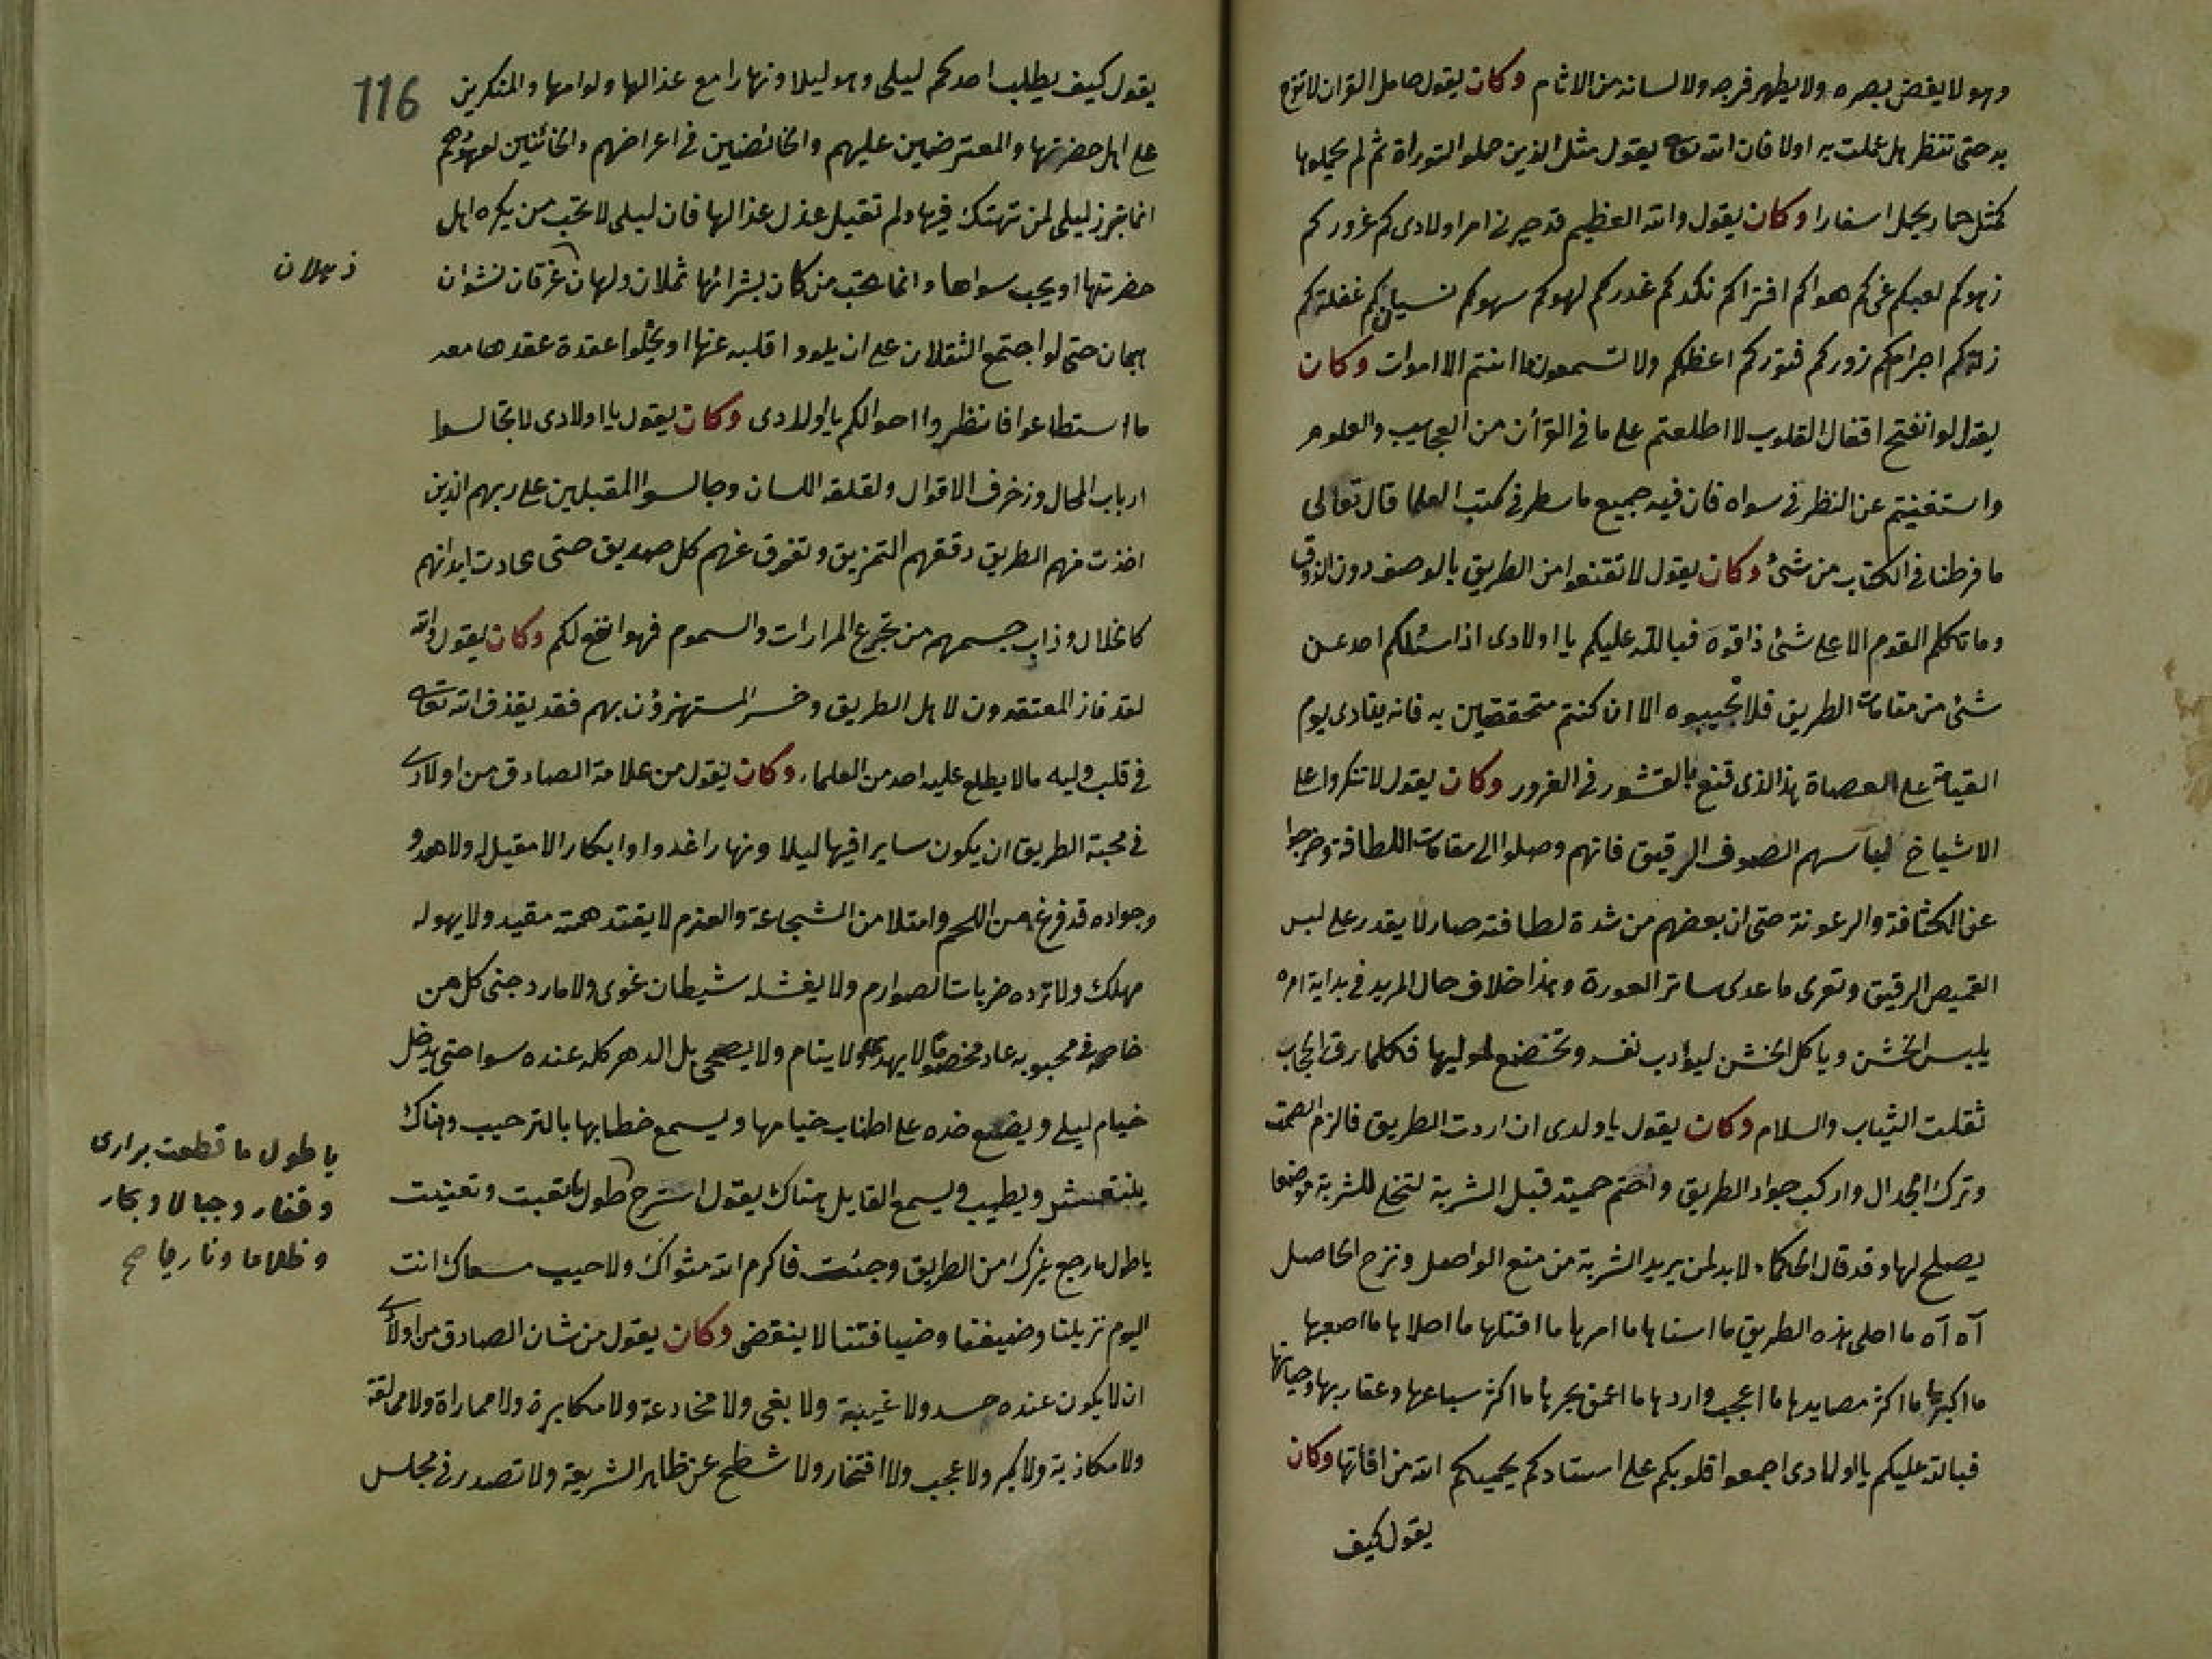 وهو لا يغض بصره ولا يطهر فرجه ولا لسانه من الاثام وكان يقول حامل القران لا تفرح
به حتى تنظر هل عملت به اولا فان الله تعه يقول مثل الذين حملوا التوراة ثم لم يحملوها
كمثل حمار يحمل اسفارا وكان يقول والله العظيم قد حير في امر اولادى كم غروركم
زهوكم لعبكم غيكم هواكم افتراكم نكدكم غدركم لهوكم سهوكم نسيانكم غفلتكم
زلتكم اجرامكم زوركم فتوركم اعظكم ولا تسمعون ما انتم الا اموات وكان
يقول لو انفتح اقفال القلوب لا اطلعتم على ما فى القرأن من العجايب والعلوم
واستغنيتم عن النظر فى سواه فان فيه جميع ما سطر فى كتب العلما قال تعالى
ما فرطنا فى الكتاب من شئ وكان يقول لا تقنعوا من الطريق بالوصف دون الذوق
وما تكلم القوم الا على شئ ذاقوه فبالله عليكم يا اولادى اذا سئلكم احد عن
شئ من مقامات الطريق فلا تجيبوه الا ان كنتم متحققين به فانه ينادى يوم
القيامة على العصاة هذا الذى قنع بالقشور فى الغرور وكان يقول لا تنكروا على
الاشياخ لباسهم الصوف الرقيق فانهم وصلوا الى مقامات اللطافة وخرجوا
عن الكثافة والرعونة حتى ان بعضهم من شدة لطافته صار لا يقدر على لبس
القميص الرقيق وتعرى ما عدى ساتر العورة وهذا خلاف حال المريد فى بداية امره
يلبس الخشن وياكل الخشن ليؤدب نفسه وتخضع لموليها فكلما رق الحجاب
ثقلت الثياب والسلام وكان يقول يا ولدى ان اردت الطريق فالزم الصمت
وترك الجدال واركب جواد الطريق واحتم حمية قبل الشربة لتخلى للشربة موضعا
يصلح لها وقد قال الحكماء لا بد لمن يريد الشربة من منع الواصل ونزح الحاصل
آه آه ما احلى هذه الطريق ما اسناها ما امرها ما اقتلها ما احلاها ما اصعبها
ما اكبرها ما اكثر مصايدها ما اعجب واردها ما اعمق بحرها ما اكثر سباعها وعقاربها وحياتها
فبالله عليكم يا اولادى اجمعوا قلوبكم على استادكم يحميكم الله من افاتها وكان
يقول كيف
116
يقول كيف يطلب احدكم ليلى وهو ليلا ونهارا مع عذالها ولوامها والمنكرين
على اهل حضرتها والمعترضين عليهم والخائضين فى اعراضهم والخائنين لعهودهم
انما تبرز ليلى لمن تهتك فيها ولم تقبل عذل عذالها فان ليلى لا تحب من يكره اهل
حضرتها او يحب سواها وانما تحب من كان بشرائها ثملان ولهان غرقان نشوان
ذهلان
هيمان حتى لو اجتمع الثقلان على ان يلووا قلبه عنها او يحلوا عقدة عقدها معه
ما استطاعوا فانظروا احوالكم يا اولادى وكان يقول يا اولادى لا تجالسوا
ارباب المحال وزخرف الاقوال ولقلقة اللسان وجالسوا المقبلين على ربهم الذين
اخذت منهم الطريق دققهم التمزيق وتفرق عنهم كل صديق حتى عادت ابدانهم
كالخلال وذاب جسمهم من تجرع المرارات والسموم فهو انفع لكم وكان يقول والله
لقد فاز المعتقدون لاهل الطريق وخسر المستهزؤن بهم فقد يقذف الله تعه
فى قلب وليه ما لا يطلع عليه احد من العلماء وكان يقول من علامة الصادق من اولادى
فى محبة الطريق ان يكون سايرا فيها ليلا ونهارا غدوا وابكارا لا مقيل له ولا هدو
وجواده قد فرغ من اللحم وامتلا من الشجاعة والعزم لا يقتد همته مقيد ولا يهوله
مهلك ولا ترده ضربات الصوارم ولا يغشله شيطان غوى ولا مارد جنى كل من
خاصمه فى محبوبه عاد مخصوما لا يهدو ولا ينام ولا يصحى بل الدهر كله عنده سوا حتى يدخل
خيام ليلى ويضع خده على اطناب خيامها ويسمع خطابها بالترحيب وهناك
ينتعش ويطيب ويسمع القايل هناك يقول استرح طول ما تعبت وتعنيت
يا طول ما قطعت برارى
وقفار وجبالا وبحار
وظلاما ونارا صح
يا طول ما رجع غيرك من الطريق وجئت فاكرم الله مثواك ولا خيب مسعاك انت
اليوم نزيلنا وضيفنا وضيافتنا لا ينقضى وكان يقول من شان الصادق من اولادى
ان لا يكون عنده حسد ولا غيبة ولا بغى ولا مخادعة ولا مكابرة ولا مماراة ولا ممالقة
ولا مكاذبة ولا كبر ولا عجب ولا افتخار ولا شطح عن ظاهر الشريعة ولا تصدر فى مجلس